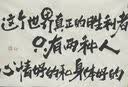 这个世界真正的胜利者
只有两种人
心情好的和身体好的